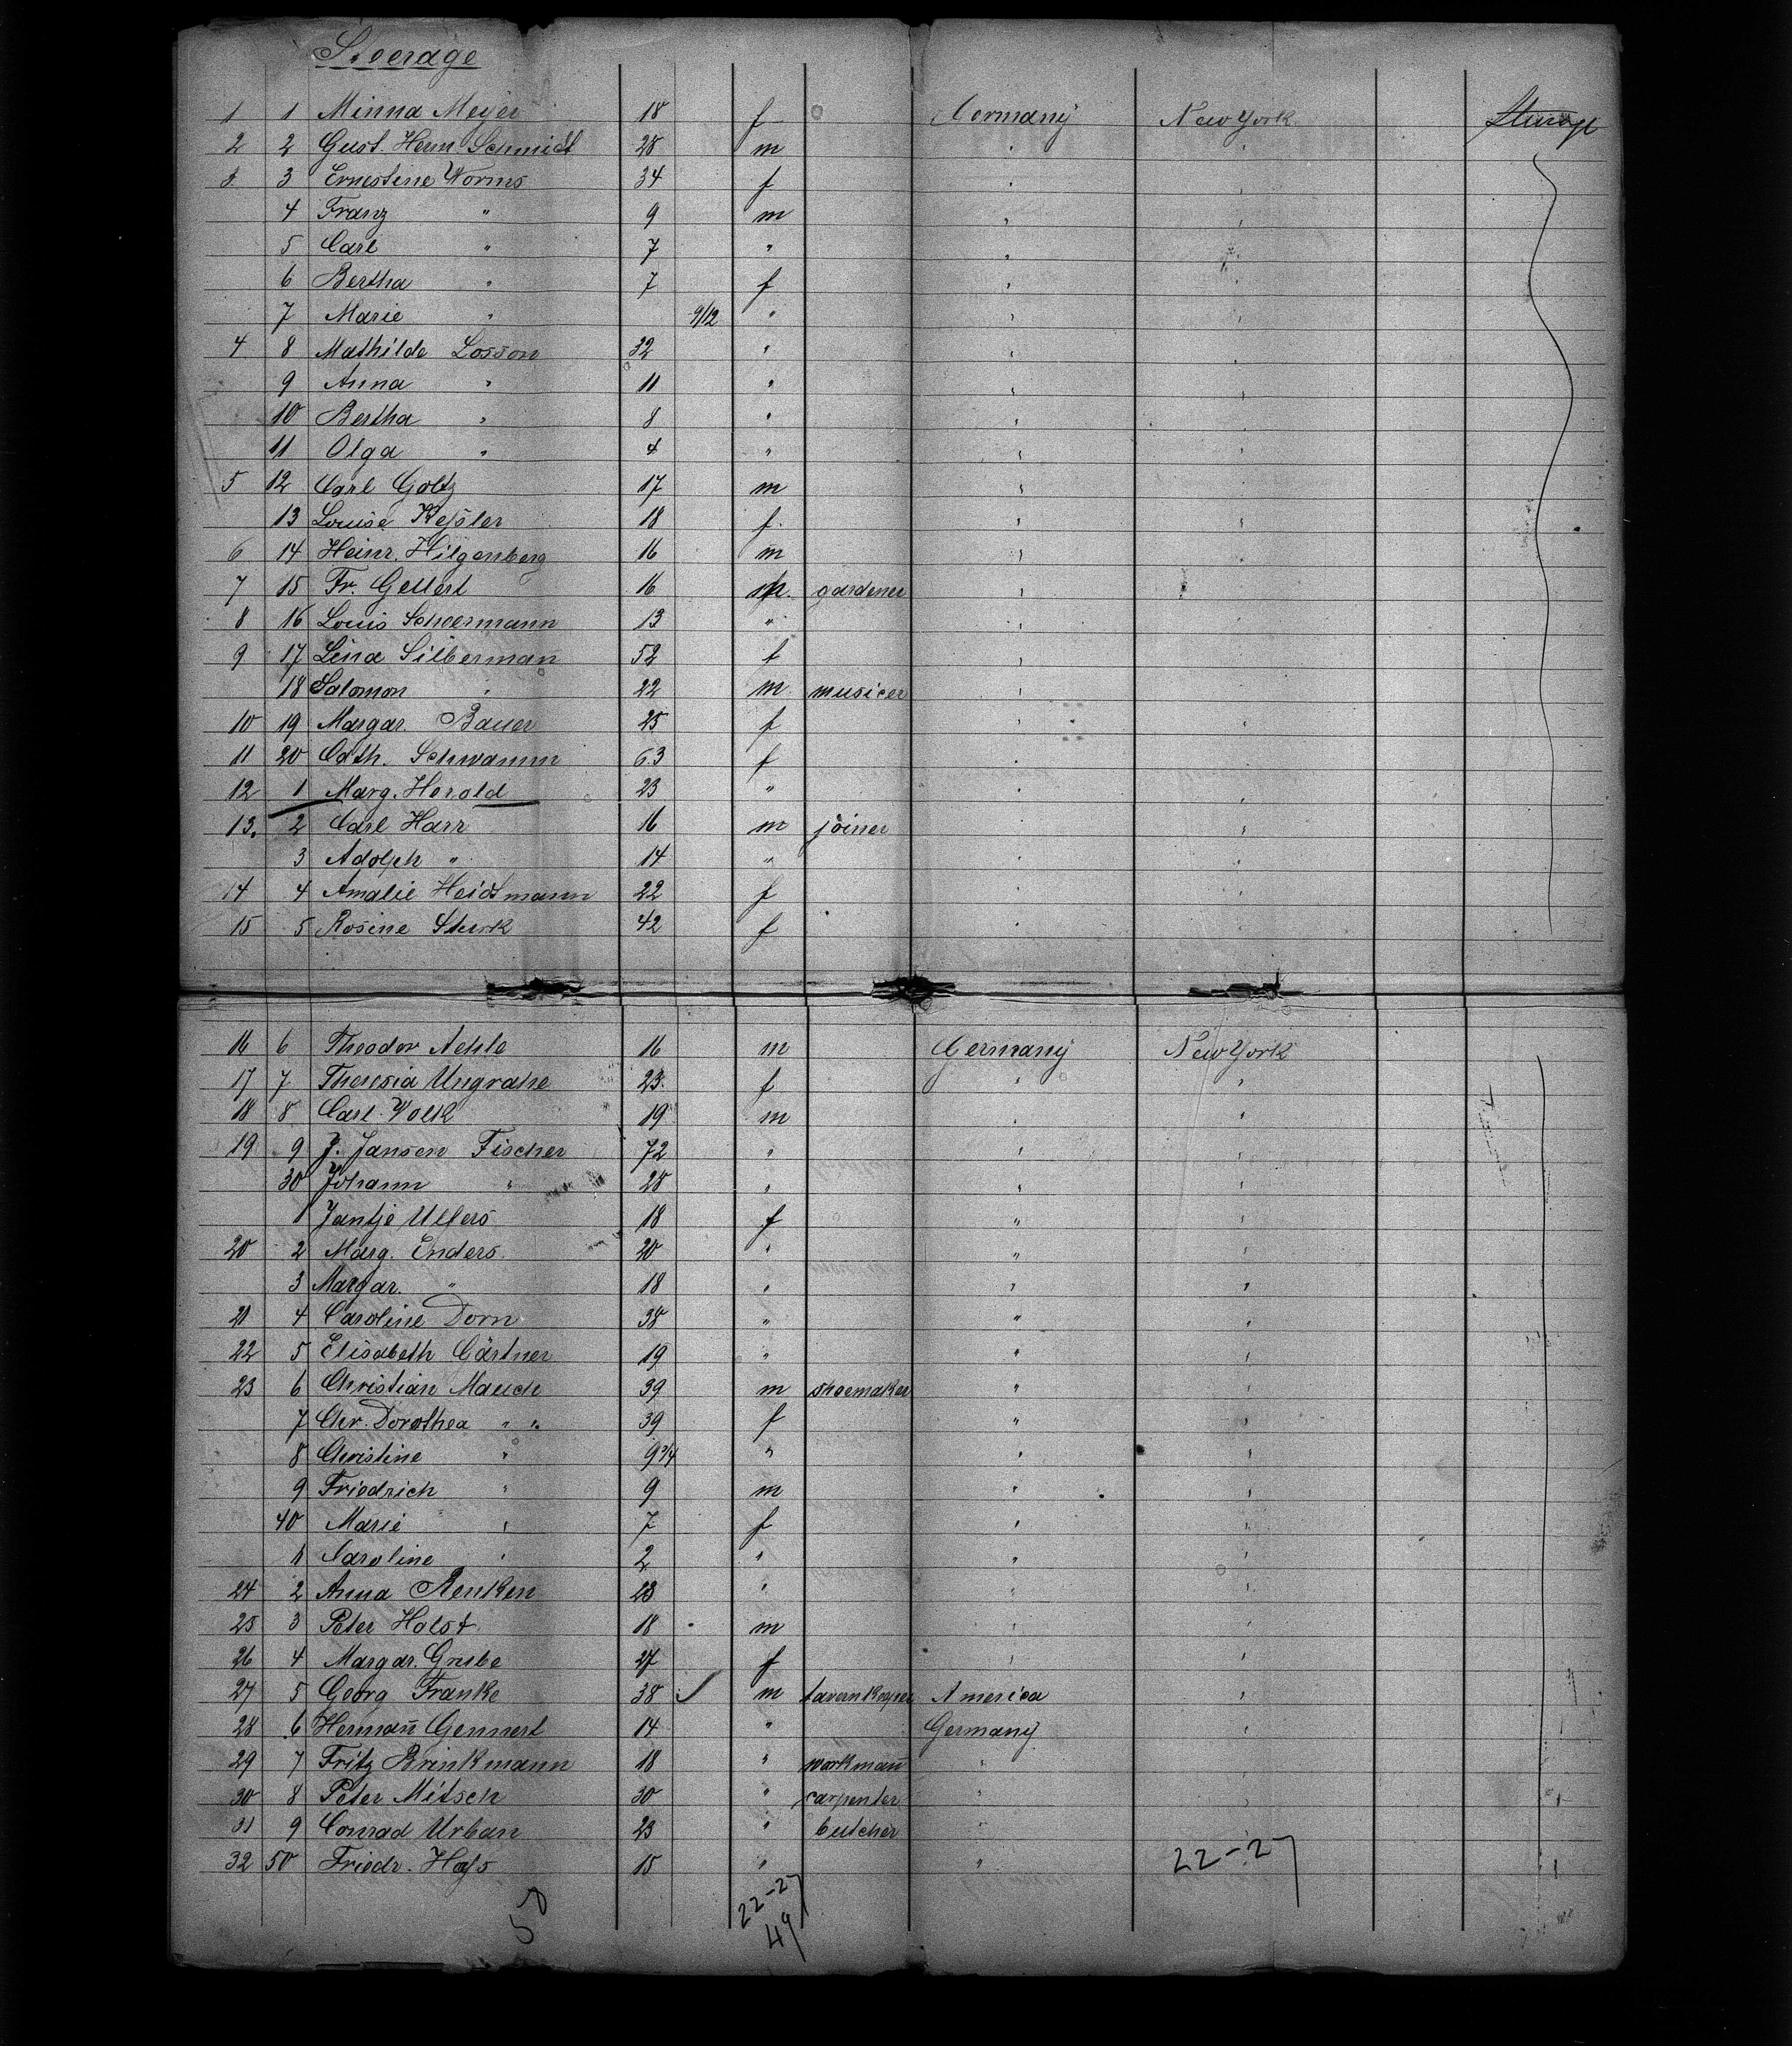 Steerage
1 1 Minna Meyer 18 f Germany New York Steerage
2 2 Gust. Herm Schmidt 28 m " "
3 3 Ernestine Worms 34 f " "
4 Franz " 9 m " "
5 Carl " 7 " " "
6 Bertha " 7 f " "
7 Marie " 9/12 " " "
4 8 Mathilde Losson 32 " " "
9 Anna " 11 " " "
10 Bertha " 8 " " "
11 Olga " 4 " " "
5 12 Carl Goltz 17 m " "
13 Louise Keßler 18 f. " "
6 14 Heinr. Hilgenberg 16 m " "
7 15 Fr. Gellert 16 m. gardener " "
8 16 Louis Schoermann 13 " " "
9 17 Lina Silberman 52 f " "
18 Salomon " 22 m musicer " "
10 19 Margar. Bauer 25 f " "
11 20 Cath. Schwamm 63 f " "
12 1 Marg. Herold 23 " " "
13. 2 Carl Harr 16 m joiner " "
3 Adolph " 14 " " "
14 4 Amalie Heidtmann 22 f " "
15 5 Rosine Sturk 42 f " "
16 6 Theodor Aehle 16 m Germany New York
17 7 Theresia Ungrahe 23. f " "
18 8 Carl Volk 19 m " "
19 9 J. Jansen Fischer 72 " " "
30 Johann " 28 " " "
1 Jantje Ulfers 18 f " "
20 2 Marg. Enders 20 " " "
3 Margar. " 18 " " "
21 4 Caroline Dorn 38 " " "
22 5 Elisabeth Gärtner 19 " " "
23 6 Christian Mauch 39 m shoemaker " "
7 Chr. Dorothea " " 39 f " "
8 Christine " 9 3/4 " " "
9 Friedrich " 9 m " "
40 Marie " 7 f " "
1 Caroline " 2 " " "
24 2 Anna Renken 23 " " "
25 3 Peter Holst 18 m " "
26 4 Margar. Grube 27 f " "
27 5 Georg Franke 38 m tavernkeeper America "
28 6 Hermañ Gennert 14 " Germany "
29 7 Fritz Brinkmann 18 " workmañ " "
30 8 Peter Mitsch 30 " carpenter " "
31 9 Conrad Urban 23 " butcher " "
32 50 Friedr. Haß 15 " " 22-27
50 22-27
49